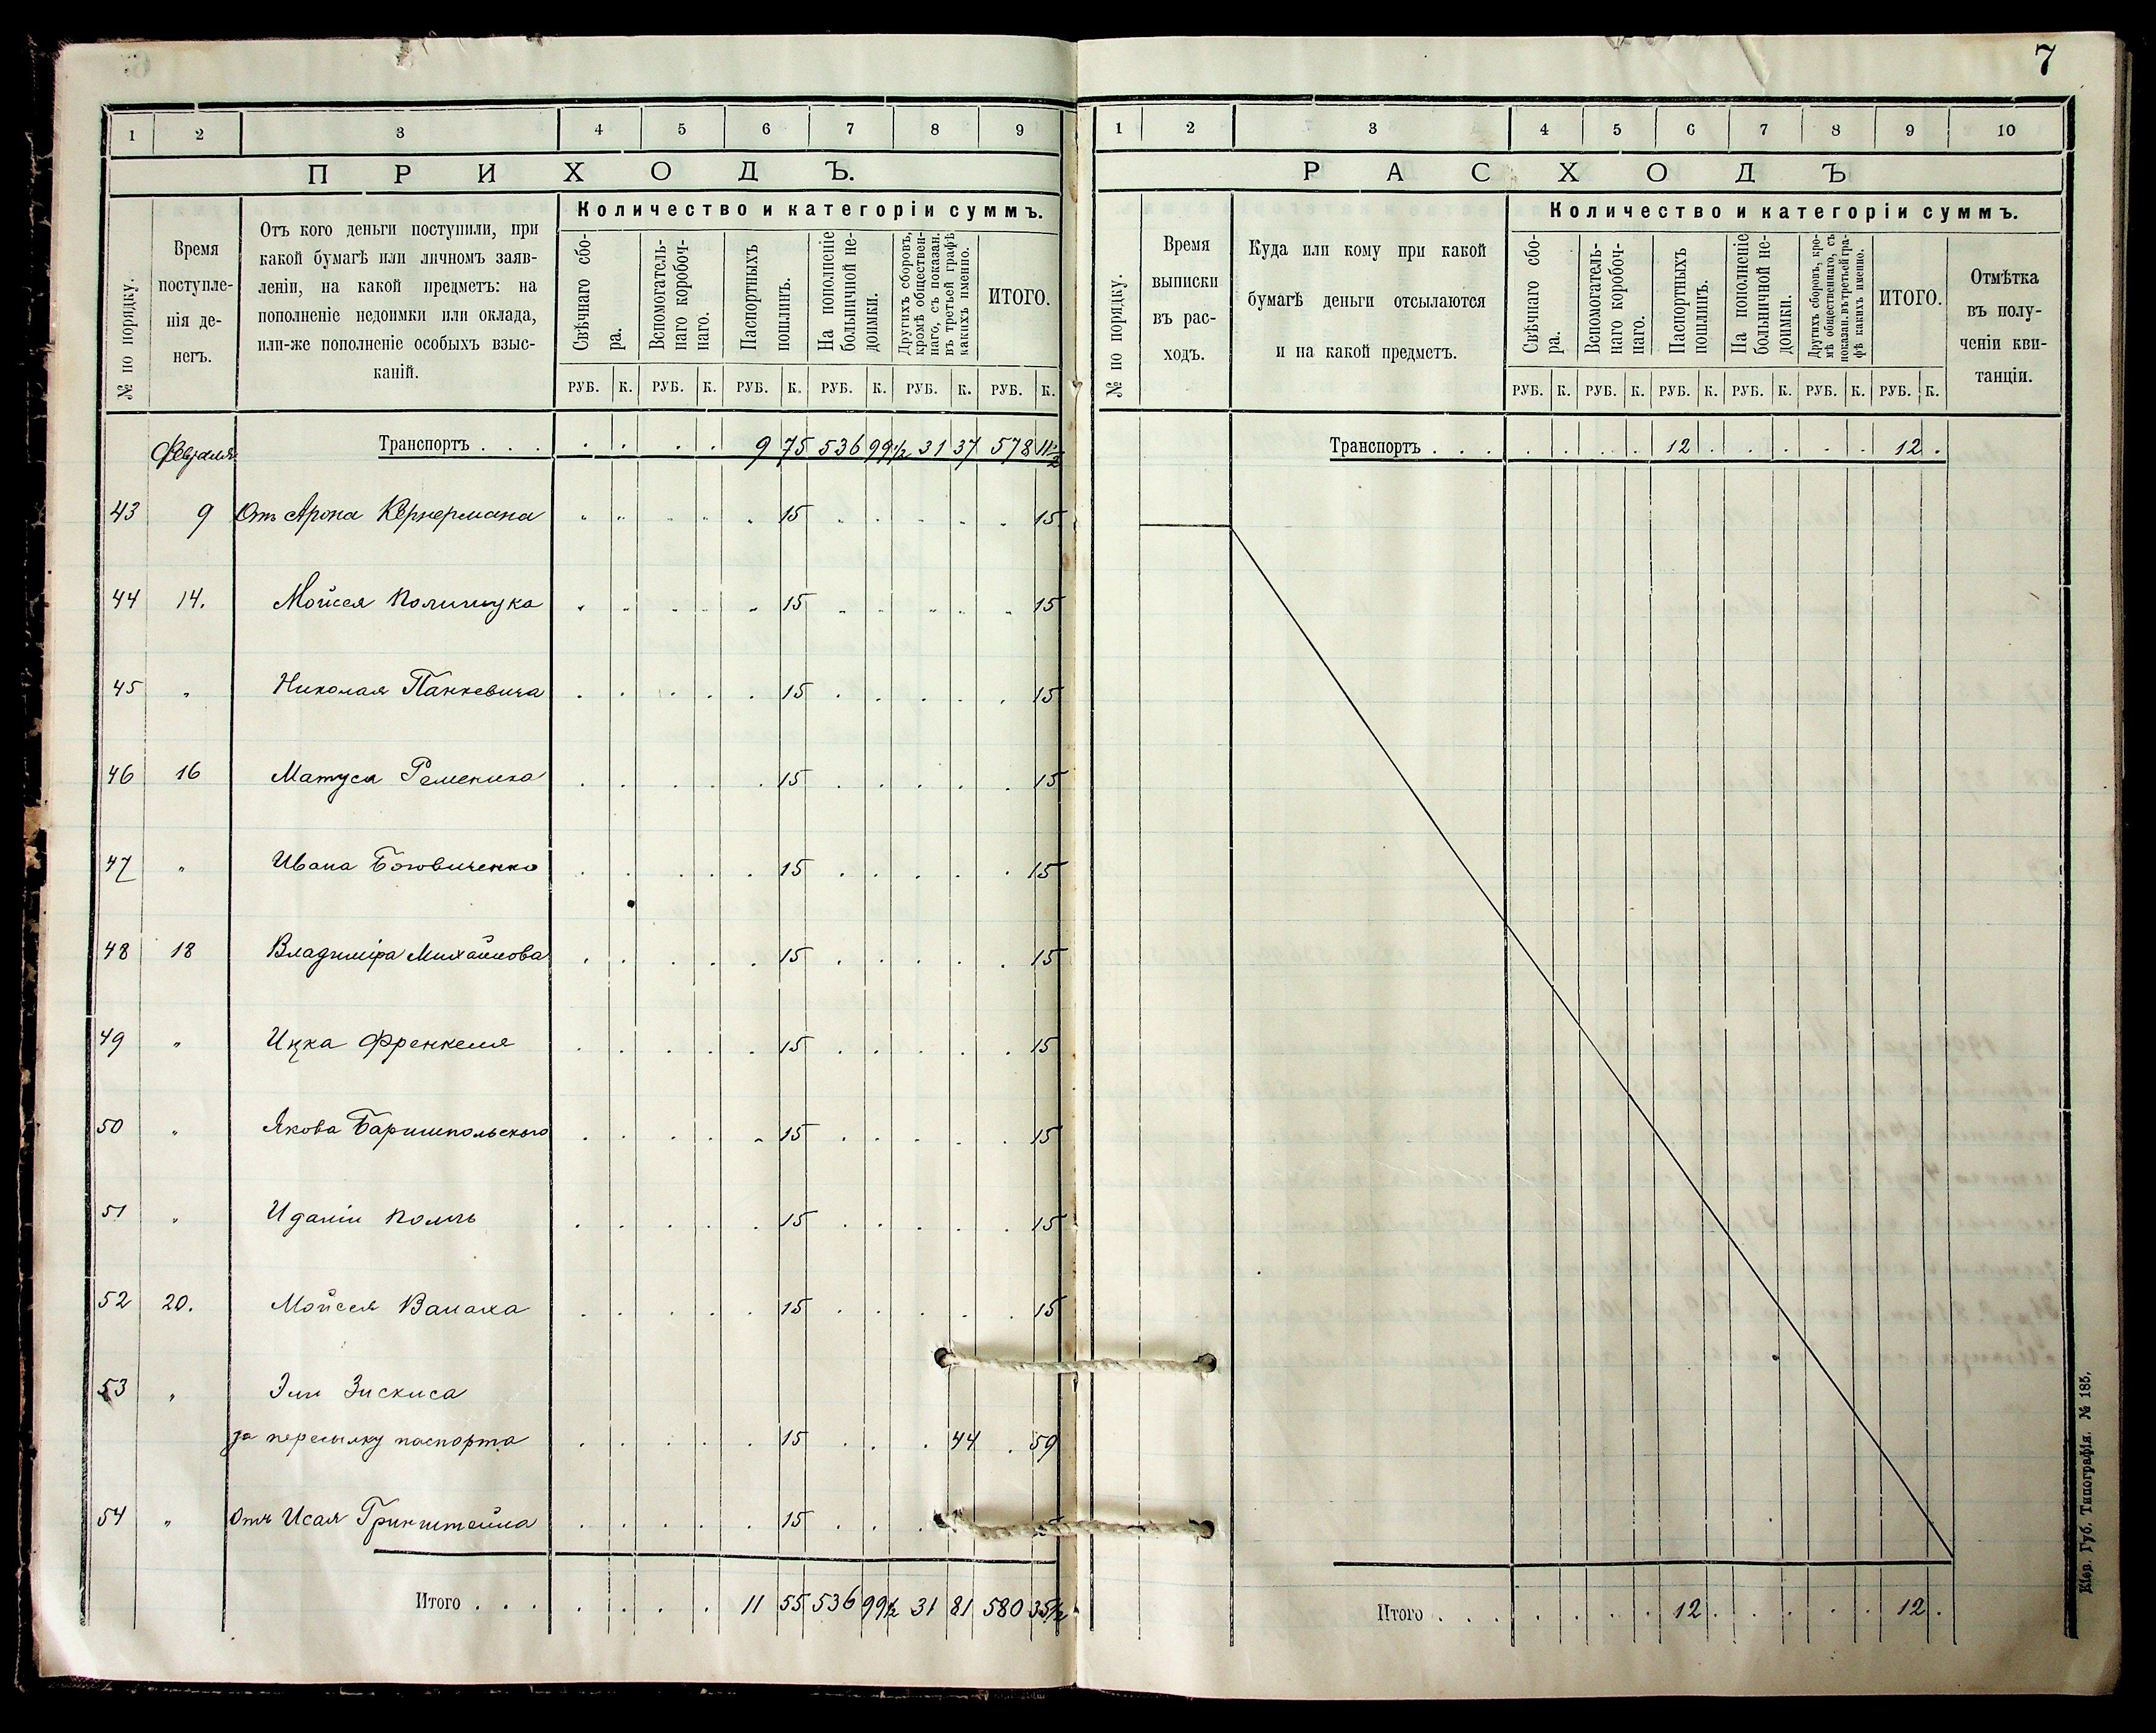 7
1 2 3 4 5 6 7 8 9
ПРИХОДЪ.
№ по порядку.
Время поступле-
нія де-
негъ.
Отъ кого деньги поступили, при
какой бумагѣ или личномъ заяв-
леніи, на какой предметъ: на
пополненіе недоимки или оклада,
или-же пополненіе особыхъ взыс-
каній.
Количество и категоріи суммъ.
Свѣчнаго сбо-
ра.
Вспомогатель-
наго коробоч-
наго.
Паспортныхъ
пошлинъ.
На пополненіе
больничной не-
доимки.
Другихъ сборовъ,
кромѣ обществен-
наго, съ показан.
въ третьей графѣ
какихъ именно.
ИТОГО.
РУБ. К. РУБ. К. РУБ. К. РУБ. К. РУБ. К. РУБ. К.
Февраля Транспортъ . . . 9 75 536 99½ 31 37 578 11½
43 9 Отъ Арона Кернермана 15 15
44 14. Мойсея Полищука 15 15
45 " Николая Панкевича 15 15
46 16 Матуса Ременика 15 15
47 " Ивана Боговиченко 15 15
48 18 Владиміра Михайлова 15 15
49 " Ицка Френкеля 15 15
50 " Якова Баришпольского 15 15
51 " 15 15
52 20. Мойсея Валаха 15 15
53 " Эли Зискиса
за пересылку паспорта 15 44 59
54 " Отъ Исая Гринштейна 15 15
Итого . . . 11 55 536 99½ 31 81 580 35½
1 2 3 4 5 6 7 8 9 10
РАСХОДЪ
№ по порядку.
Время
выписки
въ рас-
ходъ.
Куда или кому при какой
бумагѣ деньги отсылаются
и на какой предметъ.
Количество и категоріи суммъ.
Свѣчнаго сбо-
ра.
Вспомогатель-
наго коробоч-
наго.
Паспортныхъ
пошлинъ.
На пополненіе
больничной не-
доимки.
Другихъ сборовъ, кро-
мѣ общественнаго, съ
показан. въ третьей гра-
фѣ какихъ именно.
ИТОГО.
Отмѣтка
въ полу-
ченіи кви-
танціи.
РУБ. К. РУБ. К. РУБ. К. РУБ. К. РУБ. К. РУБ. К.
Транспортъ . . . 12 . 12 .
Итого . . . 12 . 12 .
Кіев. Губ. Типографія. № 185.